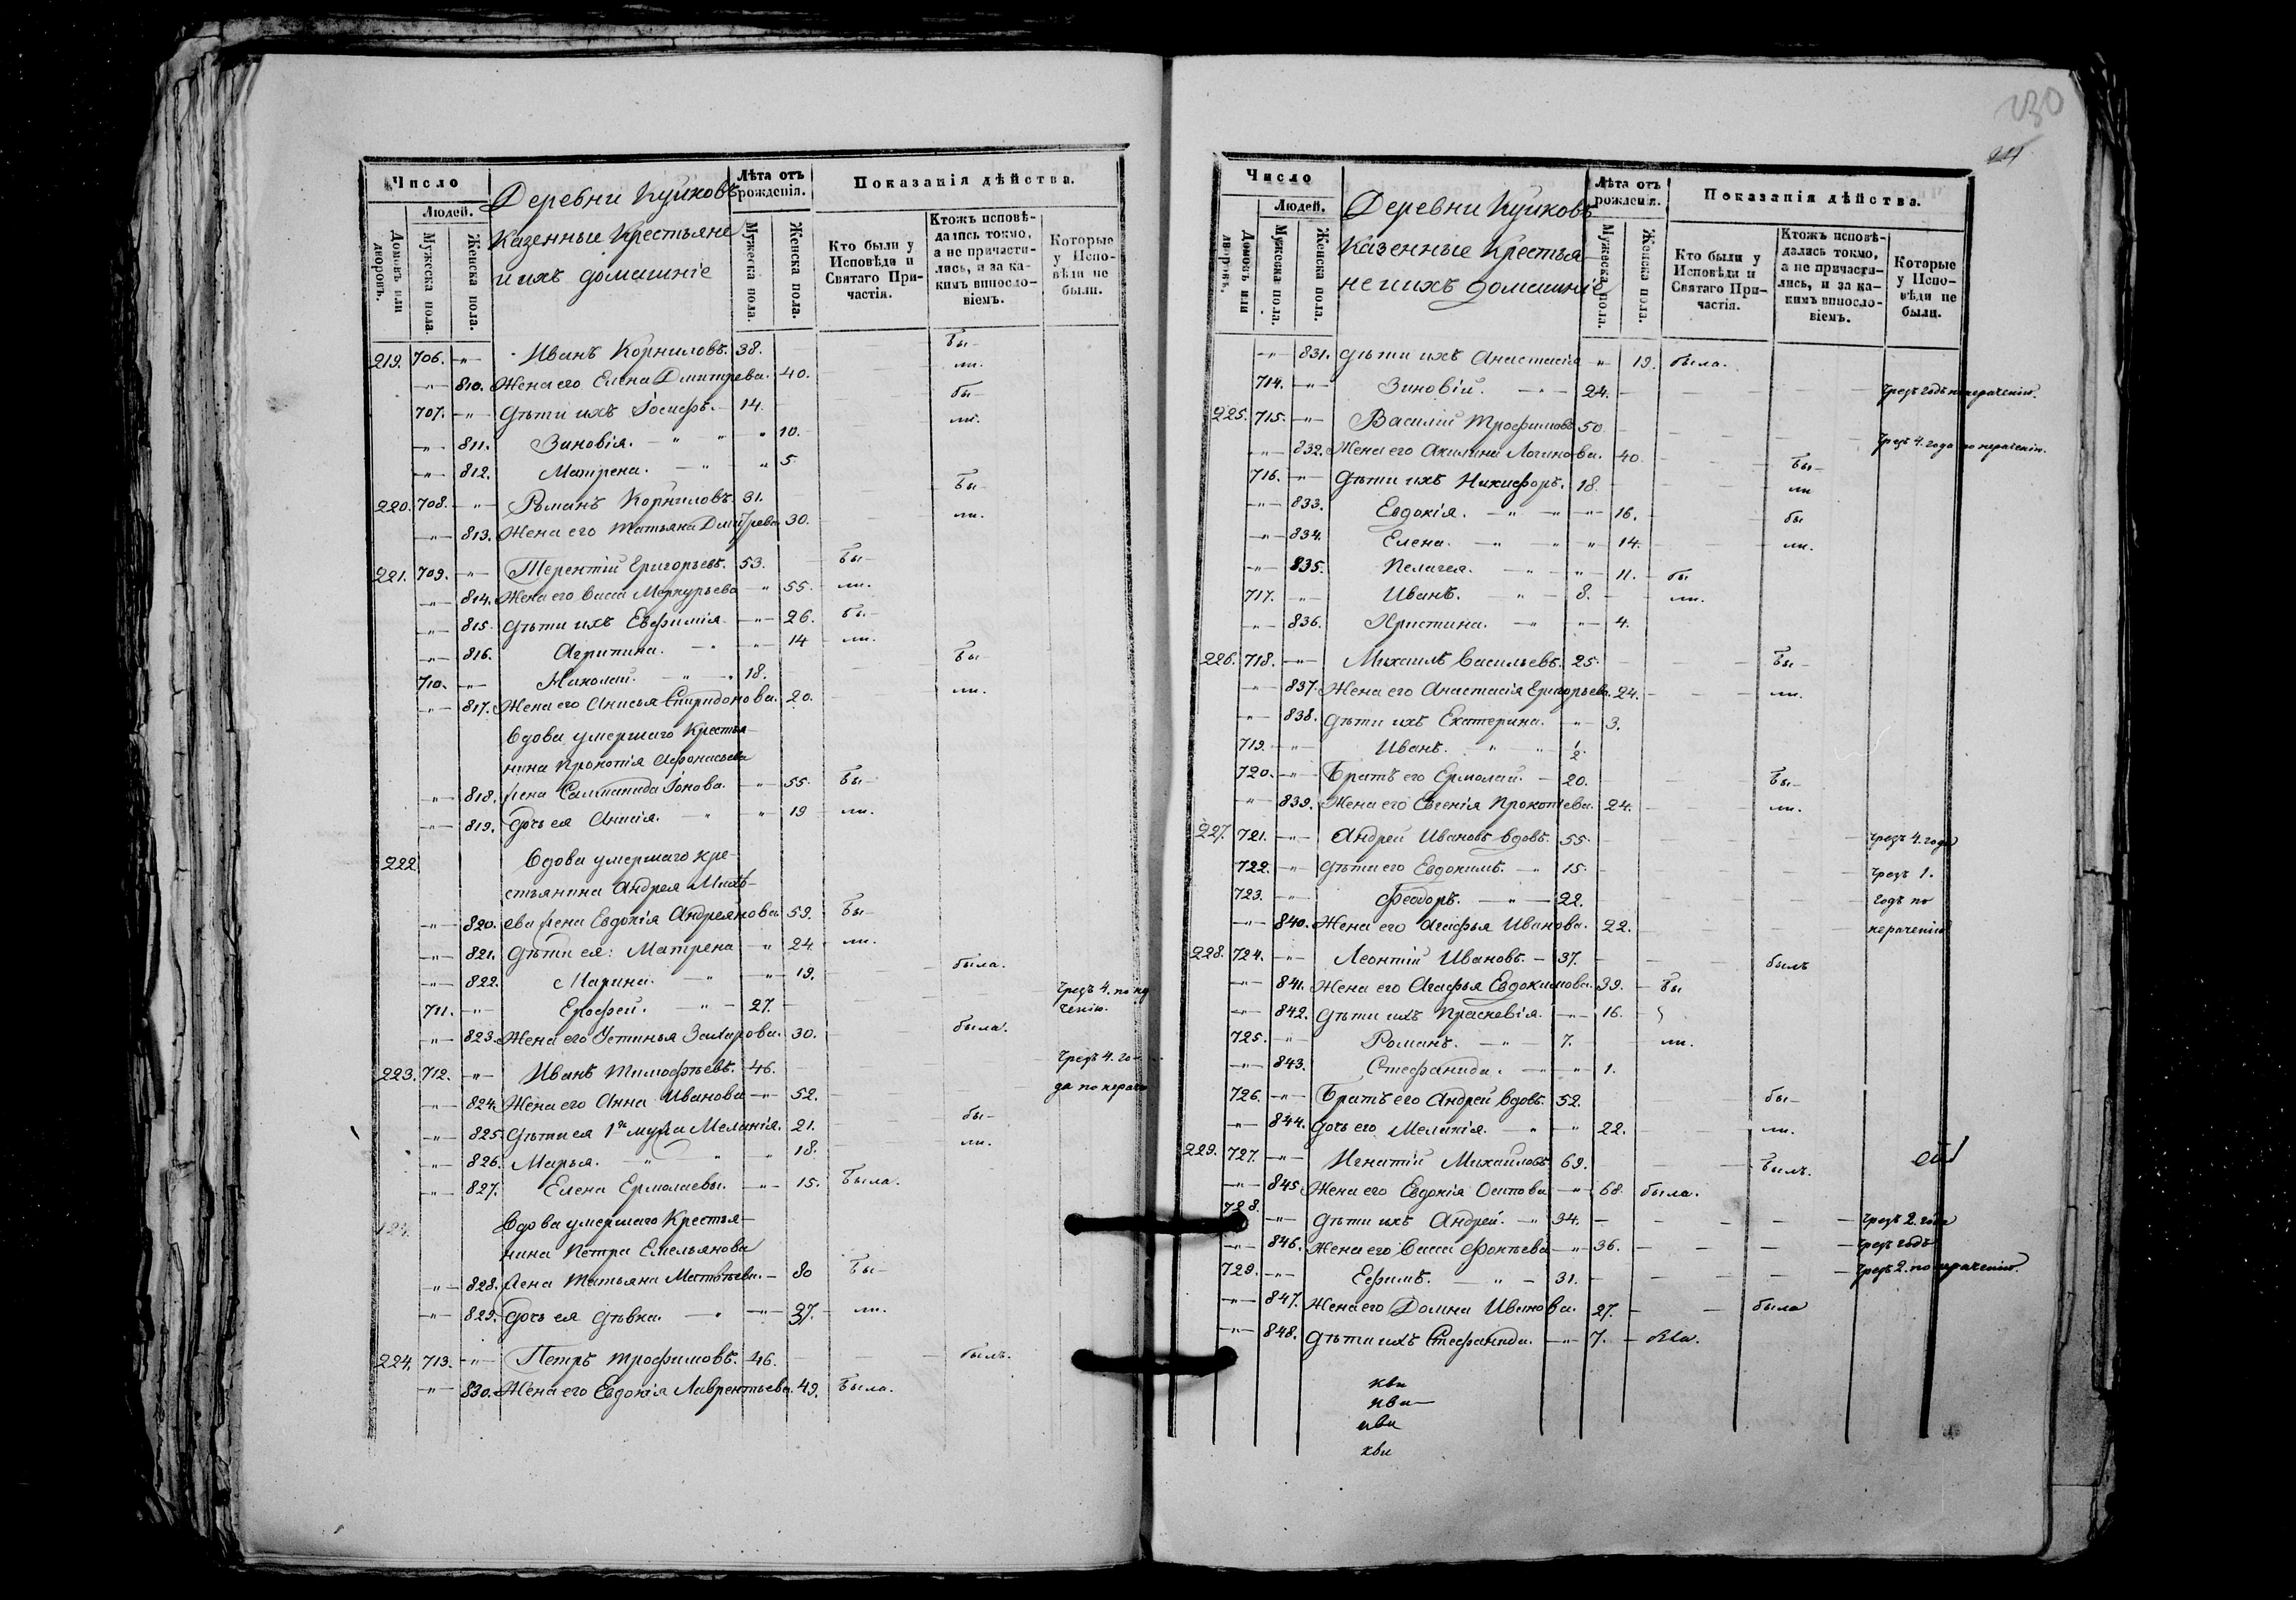 Число
Деревни Куйковъ
Лѣта отъ рожденія.
Показанія дѣйства.
Людей.
Казенные Крестьяне
и ихъ домашніе
Домовъ или дворовъ.
Мужеска пола.
Женска пола.
Мужеска пола.
Женска пола.
Кто были у Исповѣди и Святаго Причастія.
Ктожъ исповѣдались токмо, а не причастились, и за какимъ винословіемъ.
Которые у Исповѣди не были.
219. 706. -"- Иванъ Корниловъ. 38. Бы-
-"- 810. Жена его Елена Дмитрева. 40. ли.
707. -"- Дѣти ихъ Іосифъ. 14. бы-
-"- 811. Зиновія. " 10. ли.
-"- 812. Матрена. " 5.
220. 708. -"- Романъ Корниловъ. 31. Бы-
-"- 813. Жена его Татьяна Дмитрева. 30. ли.
221. 709. -"- Терентій Григорьевъ. 53. Бы-
-"- 814. Жена его Васса Меркурьева " 55. ли.
-"- 815. Дѣти ихъ Евфимія -"- 26. Бы-
-"- 816. Агрипина. -"- 14 ли.
710. -"- Николай. 18. Бы-
-"- 817. Жена его Анисья Спиридонова. 20. ли.
Вдова умершаго Крестья-
нина Прокопія Афонасьева
-"- 818. жена Саламанида Іонова. " 55. Бы-
-"- 819. Дочь ея Аннія. " 19 ли.
222. Вдова умершаго кре-
стьянина Андрея Михѣ-
-"- 820. ева жена Евдокія Андреянова 59. Бы-
-"- 821. Дѣти ея: Матрена " 24. ли.
-"- 822. Марина. -"- 19. была.
711. -"- Ерофей. 27. чрезъ 4. по не
-"- 823. Жена его Устинья Захарова. 30. была. ченію.
223. 712. -"- Иванъ Тимофѣевъ. 46. чрезъ 4. го-
-"- 824. Жена его Анна Иванова -"- 52. да по нераче
-"- 825. Дѣти ея 1го мужа Меланія. 21. бы-
-"- 826. Марья. " 18. ли.
-"- 827. Елена Ермолаевы. -"- 15. Была.
124. Вдова умершаго Крестья-
нина Петра Емельянова
-"- 828. жена Татьяна Матвѣева. 80 Бы-
-"- 829. Дочь ея дѣвка. -"- 37. ли.
224. 713. -"- Петръ Трофимовъ. 46. былъ.
-"- 830. Жена его Евдокія Лаврентьева. 49. Была.
230
Число
Деревни Куйковъ
Лѣта отъ рожденія.
Показанія дѣйства.
Людей.
Казенные Крестья-
не и ихъ домашніе
Домовъ или дворовъ.
Мужеска пола.
Женска пола.
Мужеска пола.
Женска пола.
Кто были у Исповѣди и Святаго Причастія.
Ктожъ исповѣдались токмо, а не причастились, и за какимъ винословіемъ.
Которые у Исповѣди не были.
-"- 831. Дѣти ихъ Анастасія " 19. была.
714. -"- Зиновій. 24. чрезъ годъ по нераченію.
225. 715. -"- Василій Трофимовъ 50. чрезъ 4. года по нераченію.
-"- 832. Жена его Акилина Логинова. 40. Бы-
716. -"- Дѣти ихъ Никифоръ. 18. ли
-"- 833. Евдокія. -"- 16. бы
-"- 834. Елена. " 14. ли.
-"- 835. Пелагея. -"- 11. бы
717. -"- Иванъ. 8. ли.
-"- 836. Христина. -"- 4.
226. 718. -"- Михаилъ Васильевъ. 25. Бы-
-"- 837. Жена его Анастасія Григорьева. 24. ли.
-"- 838. Дѣти ихъ Екатерина. -"- 3.
719. -"- Иванъ. 1/2.
720. -"- Братъ его Ермолай. 20. Бы-
-"- 839. Жена его Евгенія Прокопіева. 24. ли.
227. 721. -"- Андрей Ивановъ вдовъ. 55. чрезъ 4. года
722. -"- Дѣти его Евдокимъ. 15. чрезъ 1.
723. -"- Феодоръ. 22. годъ по
-"- 840. Жена его Агафья Иванова. 22. нераченію
228. 724. -"- Леонтій Ивановъ. 37. былъ
-"- 841. Жена его Агафья Евдокимова. 39. Бы
-"- 842. Дѣти ихъ Праскевія. -"- 16.
725. -"- Романъ. 7. ли.
-"- 843. Стефанида. " 1.
726. -"- Братъ его Андрей вдовъ. 52. бы-
-"- 844. Дочь его Меланія. -"- 22. ли.
229. 727. -"- Игнатій Михайловъ 69. Былъ.
-"- 845. Жена его Евдокія Осипова " 68. была.
728. -"- Дѣти ихъ Андрей. 34. чрезъ 2. года
-"- 846. Жена его Васса Фокѣева -"- 36. чрезъ годъ
729. -"- Ефимъ. 31. чрезъ 2. по нераченію.
-"- 847. Жена его Домна Иванова. 27. была
-"- 848. Дѣти ихъ Стефанида. -"- 7.